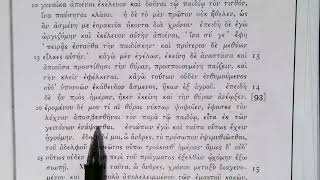 10 γυναῖκα ἀπιέναι ἐκέλευον καὶ δοῦναι τῷ παιδίῳ τὸν τιτθόν,
ἵνα παύσηται κλᾶον. ἡ δὲ τὸ μὲν πρῶτον οὐκ ἤθελεν, ὡς
ἂν ἀσμένη με ἑορακυῖα ἥκοντα διὰ χρόνου· ἐπειδὴ δὲ ἐγὼ
ὠργιζόμην καὶ ἐκέλευον αὐτὴν ἀπιέναι, "ἵνα σύ γε" ἔφη
"πειρᾷς ἐνταῦθα τὴν παιδίσκην· καὶ πρότερον δὲ μεθύων
15 εἷλκες αὐτήν." κἀγὼ μὲν ἐγέλων, ἐκείνη δὲ ἀναστᾶσα καὶ 13
ἀπιοῦσα προστίθησι τὴν θύραν, προσποιουμένη παίζειν, καὶ
τὴν κλεῖν ἐφέλκεται. κἀγὼ τούτων οὐδὲν ἐνθυμούμενος
οὐδ' ὑπονοῶν ἐκάθευδον ἄσμενος, ἥκων ἐξ ἀγροῦ. ἐπειδὴ 14
δὲ ἦν πρὸς ἡμέραν, ἧκεν ἐκείνη καὶ τὴν θύραν ἀνέῳξεν. [93]
ἐρομένου δέ μου τί αἱ θύραι νύκτωρ ψοφοῖεν, ἔφασκε τὸν
λύχνον ἀποσβεσθῆναι τὸν παρὰ τῷ παιδίῳ, εἶτα ἐκ τῶν
γειτόνων ἐνάψασθαι. ἐσιώπων ἐγὼ καὶ ταῦτα οὕτως ἔχειν
ἡγούμην. ἔδοξε δέ μοι, ὦ ἄνδρες, τὸ πρόσωπον
τοῦ ἀδελφοῦ οὔπω τριάκονθ' ἡμέρας· ὅμως δ' οὐδ'
οὕτως οὐδὲν περὶ τοῦ πράγματος ἐξελθὼν ᾠχόμην ἔξω
ταῦτα, ὦ ἄνδρες, χρόνου μεταξὺ 15
ἀπολελειμμένου τῶν ἐμαυτοῦ κακῶν,